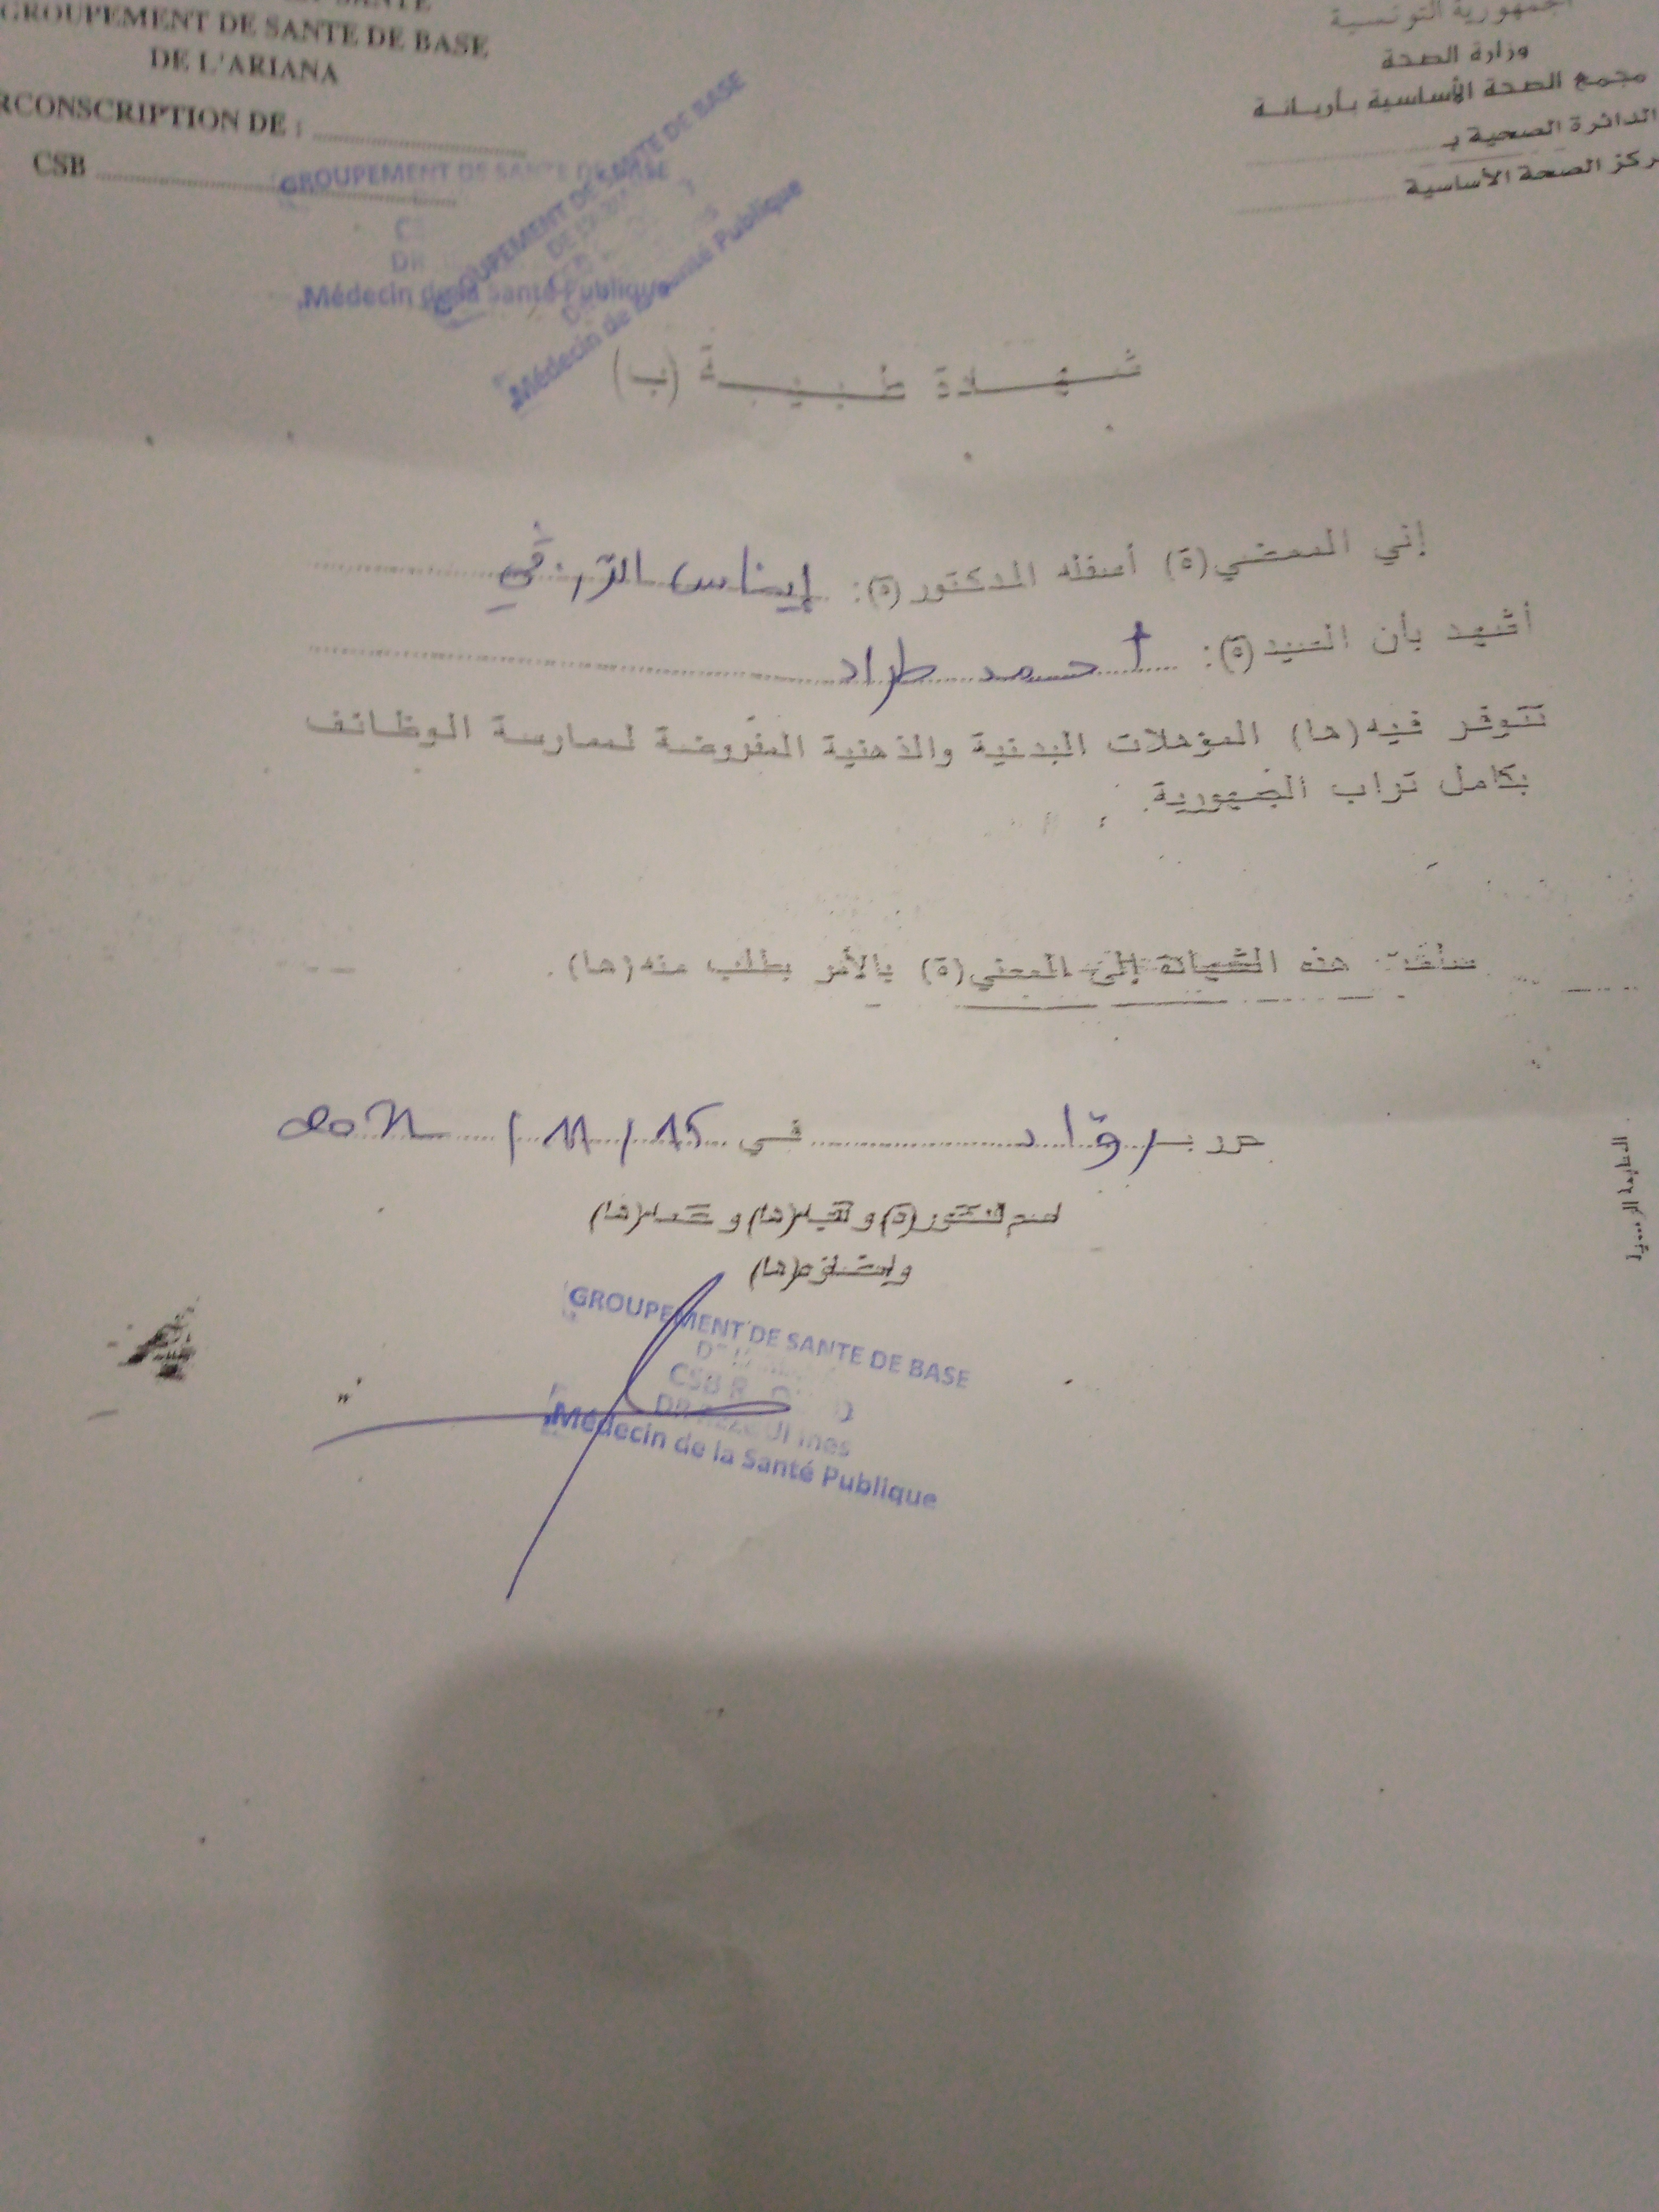 SANTE
GROUPEMENT DE SANTE DE BASE
DE L'ARIANA
RCONSCRIPTION DE :
CSB
جمهورية التونسية
وزارة الصحة
مجمع الصحة الأساسية بأريانة
الدائرة الصحية بـ
ركز الصحة الأساسية
GROUPEMENT DE SANTE DE BASE
DR
Médecin de la Santé Publique
GROUPEMENT DE SANTE DE BASE
Médecin de la Santé Publique
شهادة طبية (ب)
إني الممضي(ة) أسفله الدكتور(ة): إيناس
أشهد بأن السيد(ة): أحمد طراد
تتوفر فيه(ها) المؤهلات البدنية والذهنية المفروضة لممارسة الوظائف
بكامل تراب الجمهورية.
سلمت هذه الشهادة إلى المعني(ة) بالأمر بطلب منه(ها).
حرر بـ روّاد في 15 / 11 /
(ها) و (ها)
GROUPEMENT DE SANTE DE BASE
CSB R
DR Ines
Médecin de la Santé Publique